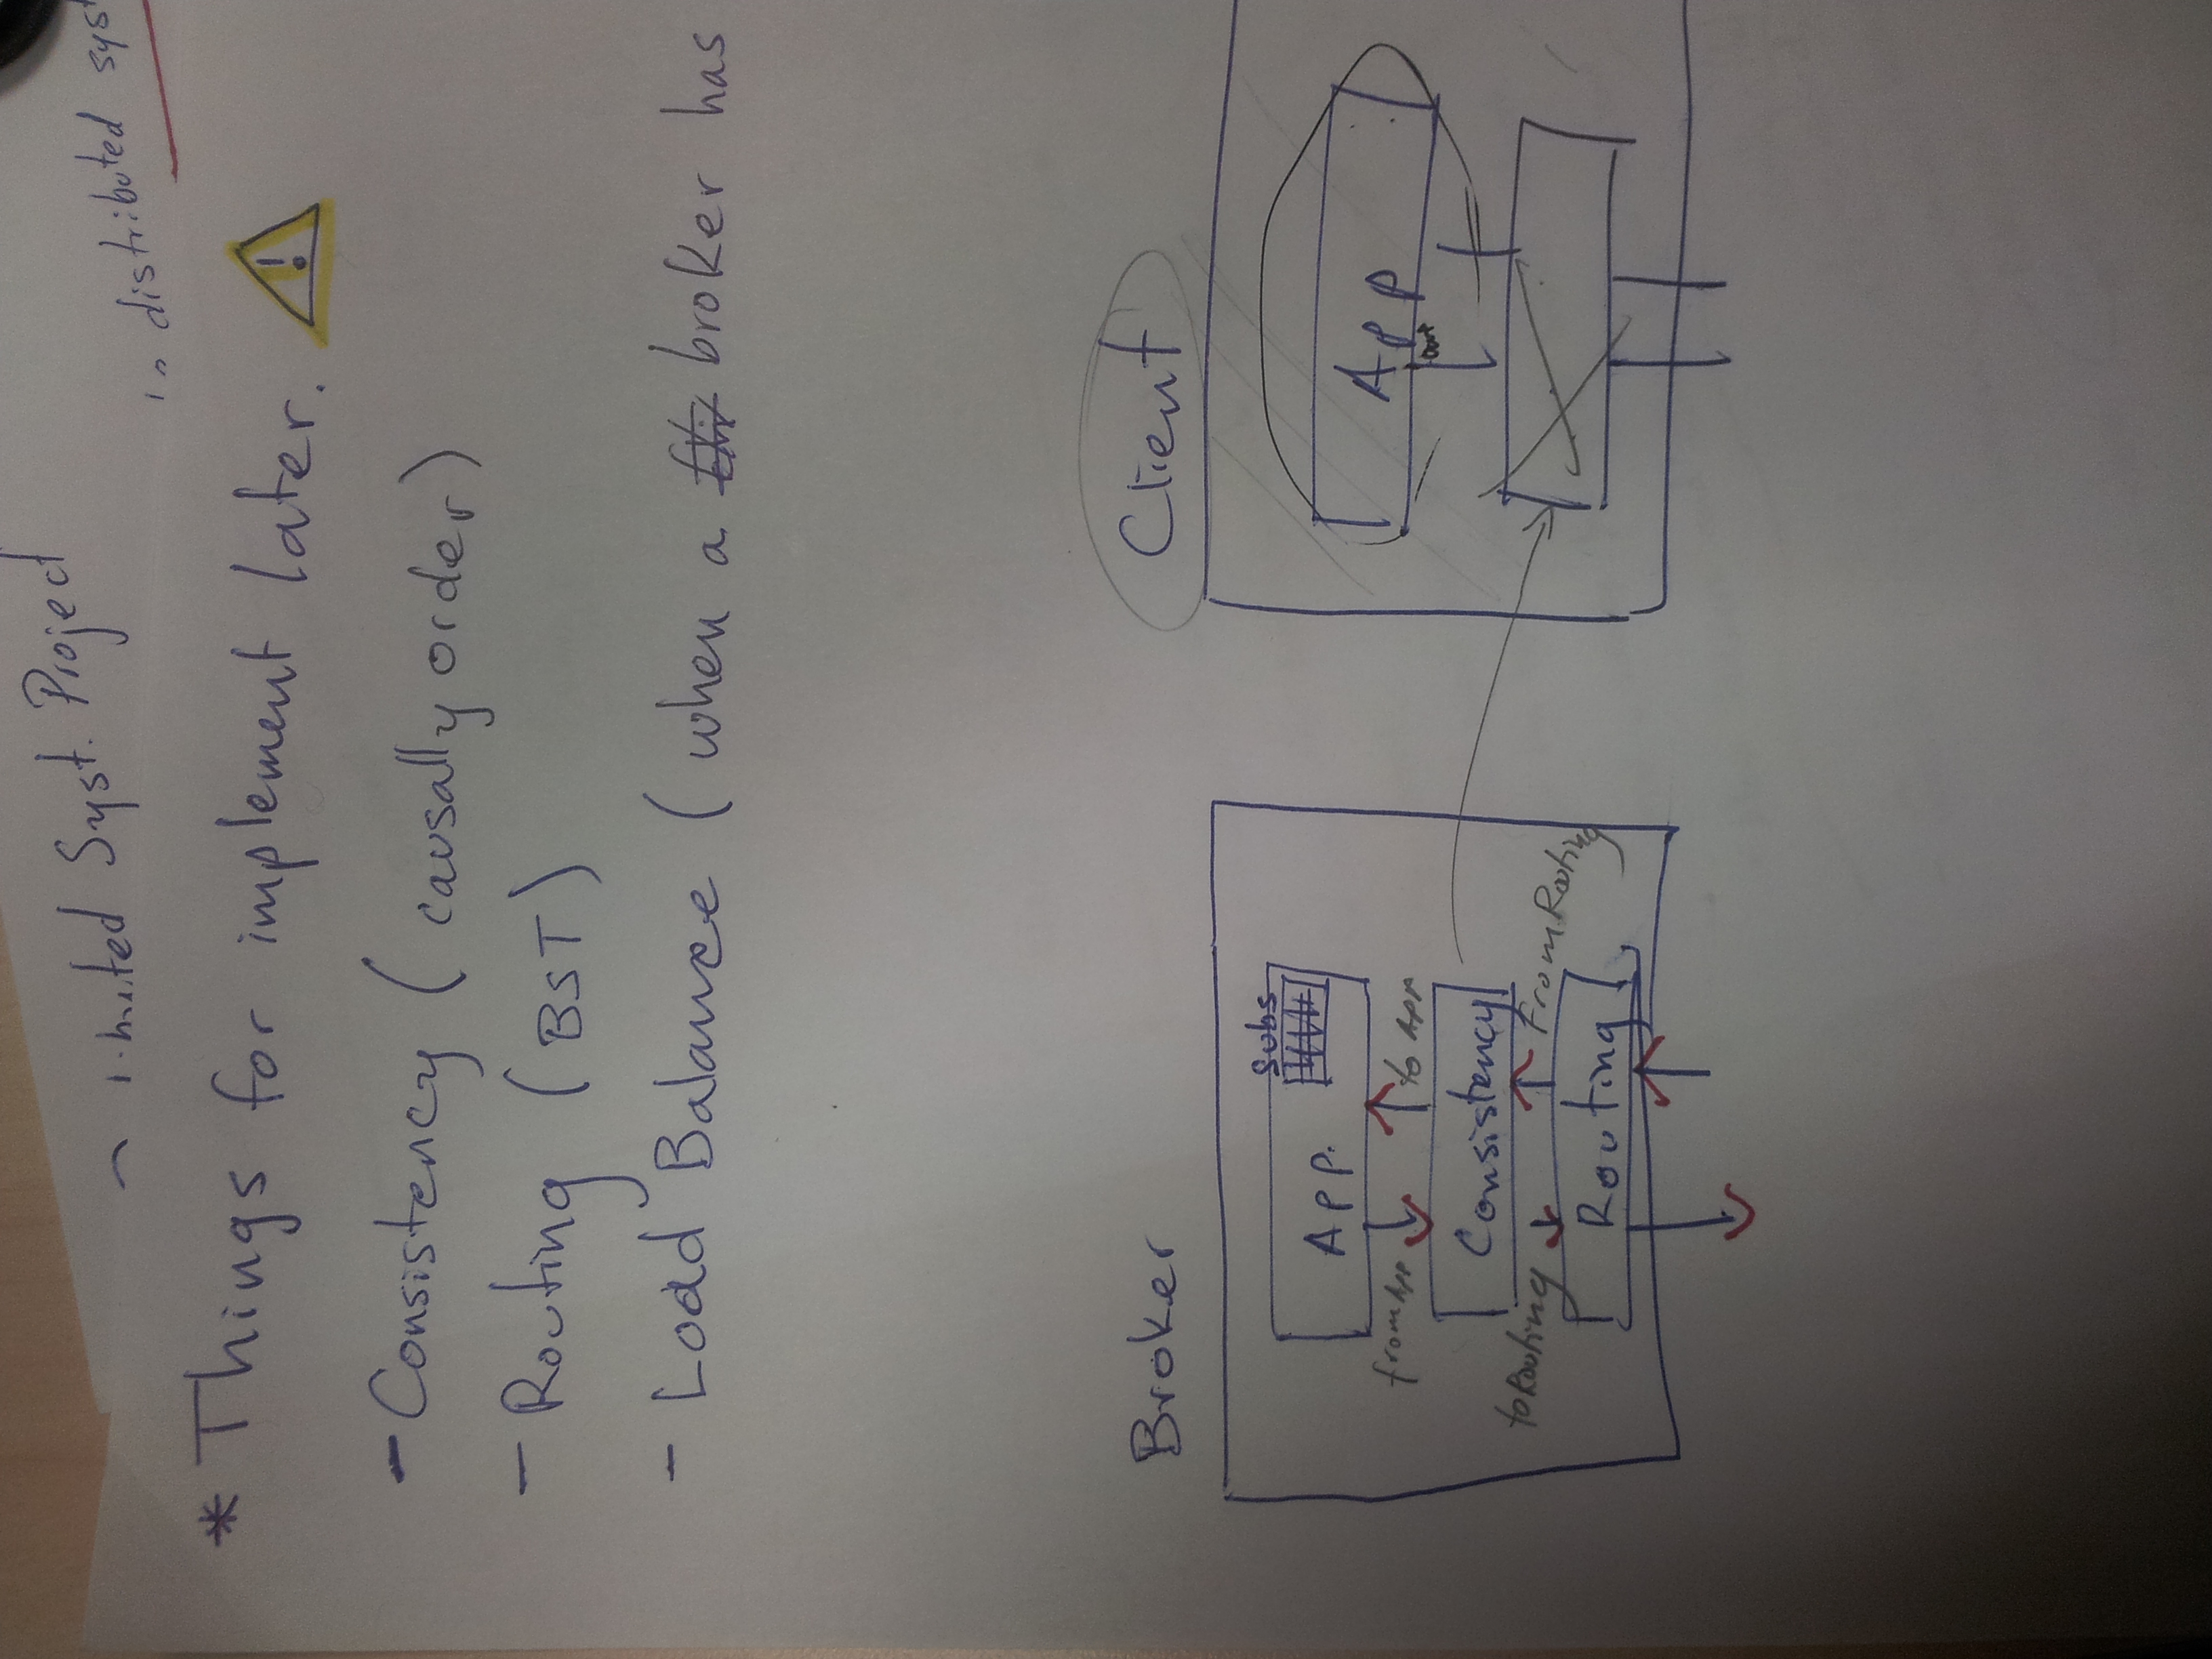 Syst. Project
distributed syst
* Things for implement later.
- Consistency (causally order)
- Routing (BST)
- Load Balance (when a broker has
Broker
Client
Subs
App.
App
out
from App
to App
Consistency
toRouting
From Routing
Routing